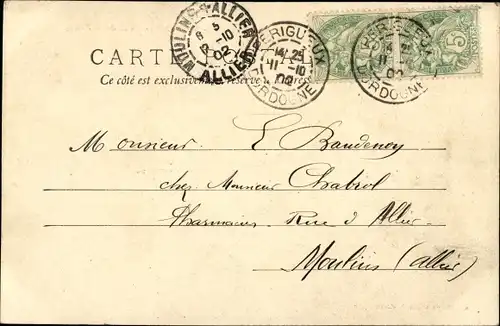 CARTE
Ce côté est exclusivement réservé à l'adresse
MOULINS-S-ALLIER
8 5
-10
02
ALLIER
PERIGUEUX
14 25
11 -10
02
DORDOGNE
PERIGUEUX
11 -10
02
DORDOGNE
5
Monsieur E Baudenoy
chez Monsieur Chabrol
Pharmacien Rue d'Allier
Moulins (allier)